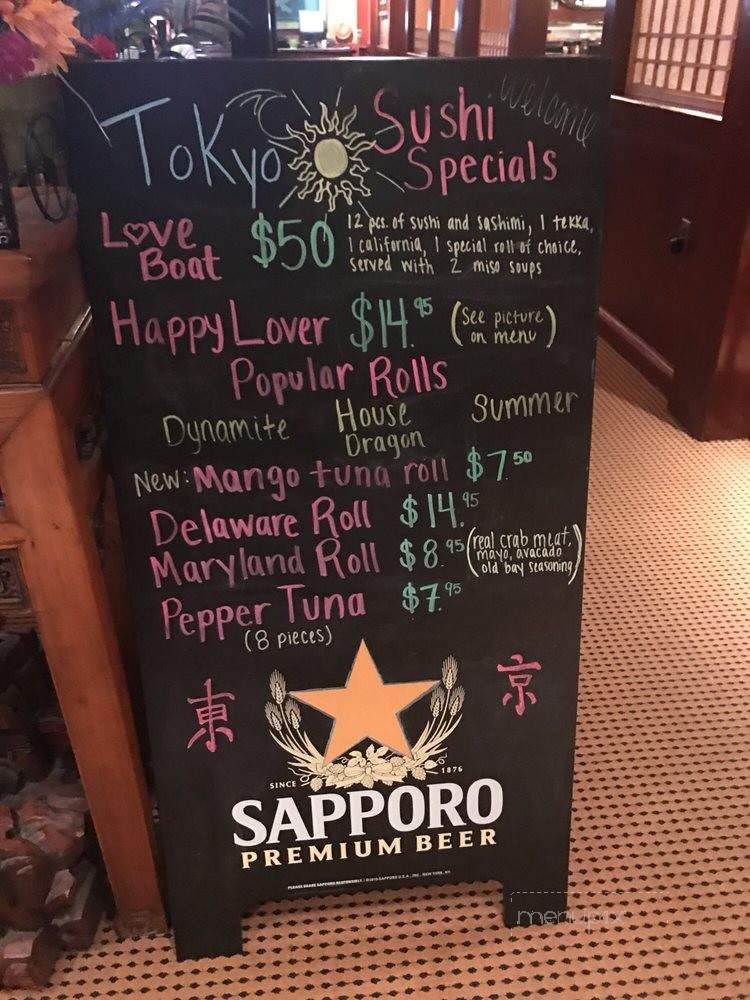 welcome
Tokyo Sushi
Specials
Love Boat $50 12 pcs. of sushi and sashimi, 1 tekka,
1 california, 1 special roll of choice,
served with 2 miso soups
Happy Lover $14.95 (See picture on menu)
Popular Rolls
Dynamite House Dragon Summer
New: Mango tuna roll $7.50
Delaware Roll $14.95
Maryland Roll $8.95 (real crab meat,
mayo, avacado
old bay seasoning)
Pepper Tuna $7.95
(8 pieces)
東 京
SINCE 1876
SAPPORO
PREMIUM BEER
PLEASE SHARE SAPPORO RESPONSIBLY
menupix